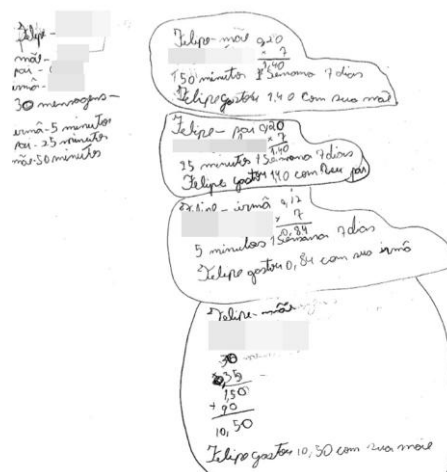 Felipe -
mãe -
pai -
irmã -
30 mensagens -
irmã - 5 minutos
pai - 25 minutos
mãe - 50 minutos
Felipe - mãe 0,20
x 7
1,40
50 minutos 1 Semana 7 dias
Felipe gastou 1,40 com sua mãe
Felipe - pai 0,20
x 7
1,40
25 minutos 1 Semana 7 dias
Felipe gastou 1,40 com seu pai
Felipe - irmã 0,12
x 7
0,84
5 minutos 1 Semana 7 dias
Felipe gastou 0,84 com sua irmã
Felipe - mãe
30
x 35
150
+ 90
10,50
Felipe gastou 10,50 com sua mãe